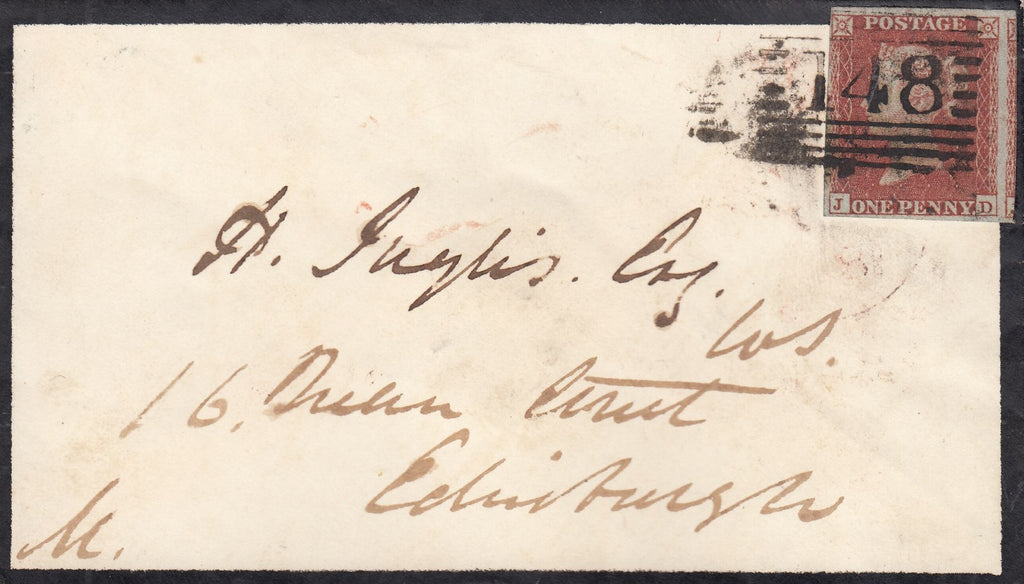 POSTAGE
148
J ONE PENNY D
H. Inglis. Esq.
WS.
16, Queen Street
Edinburgh
M.